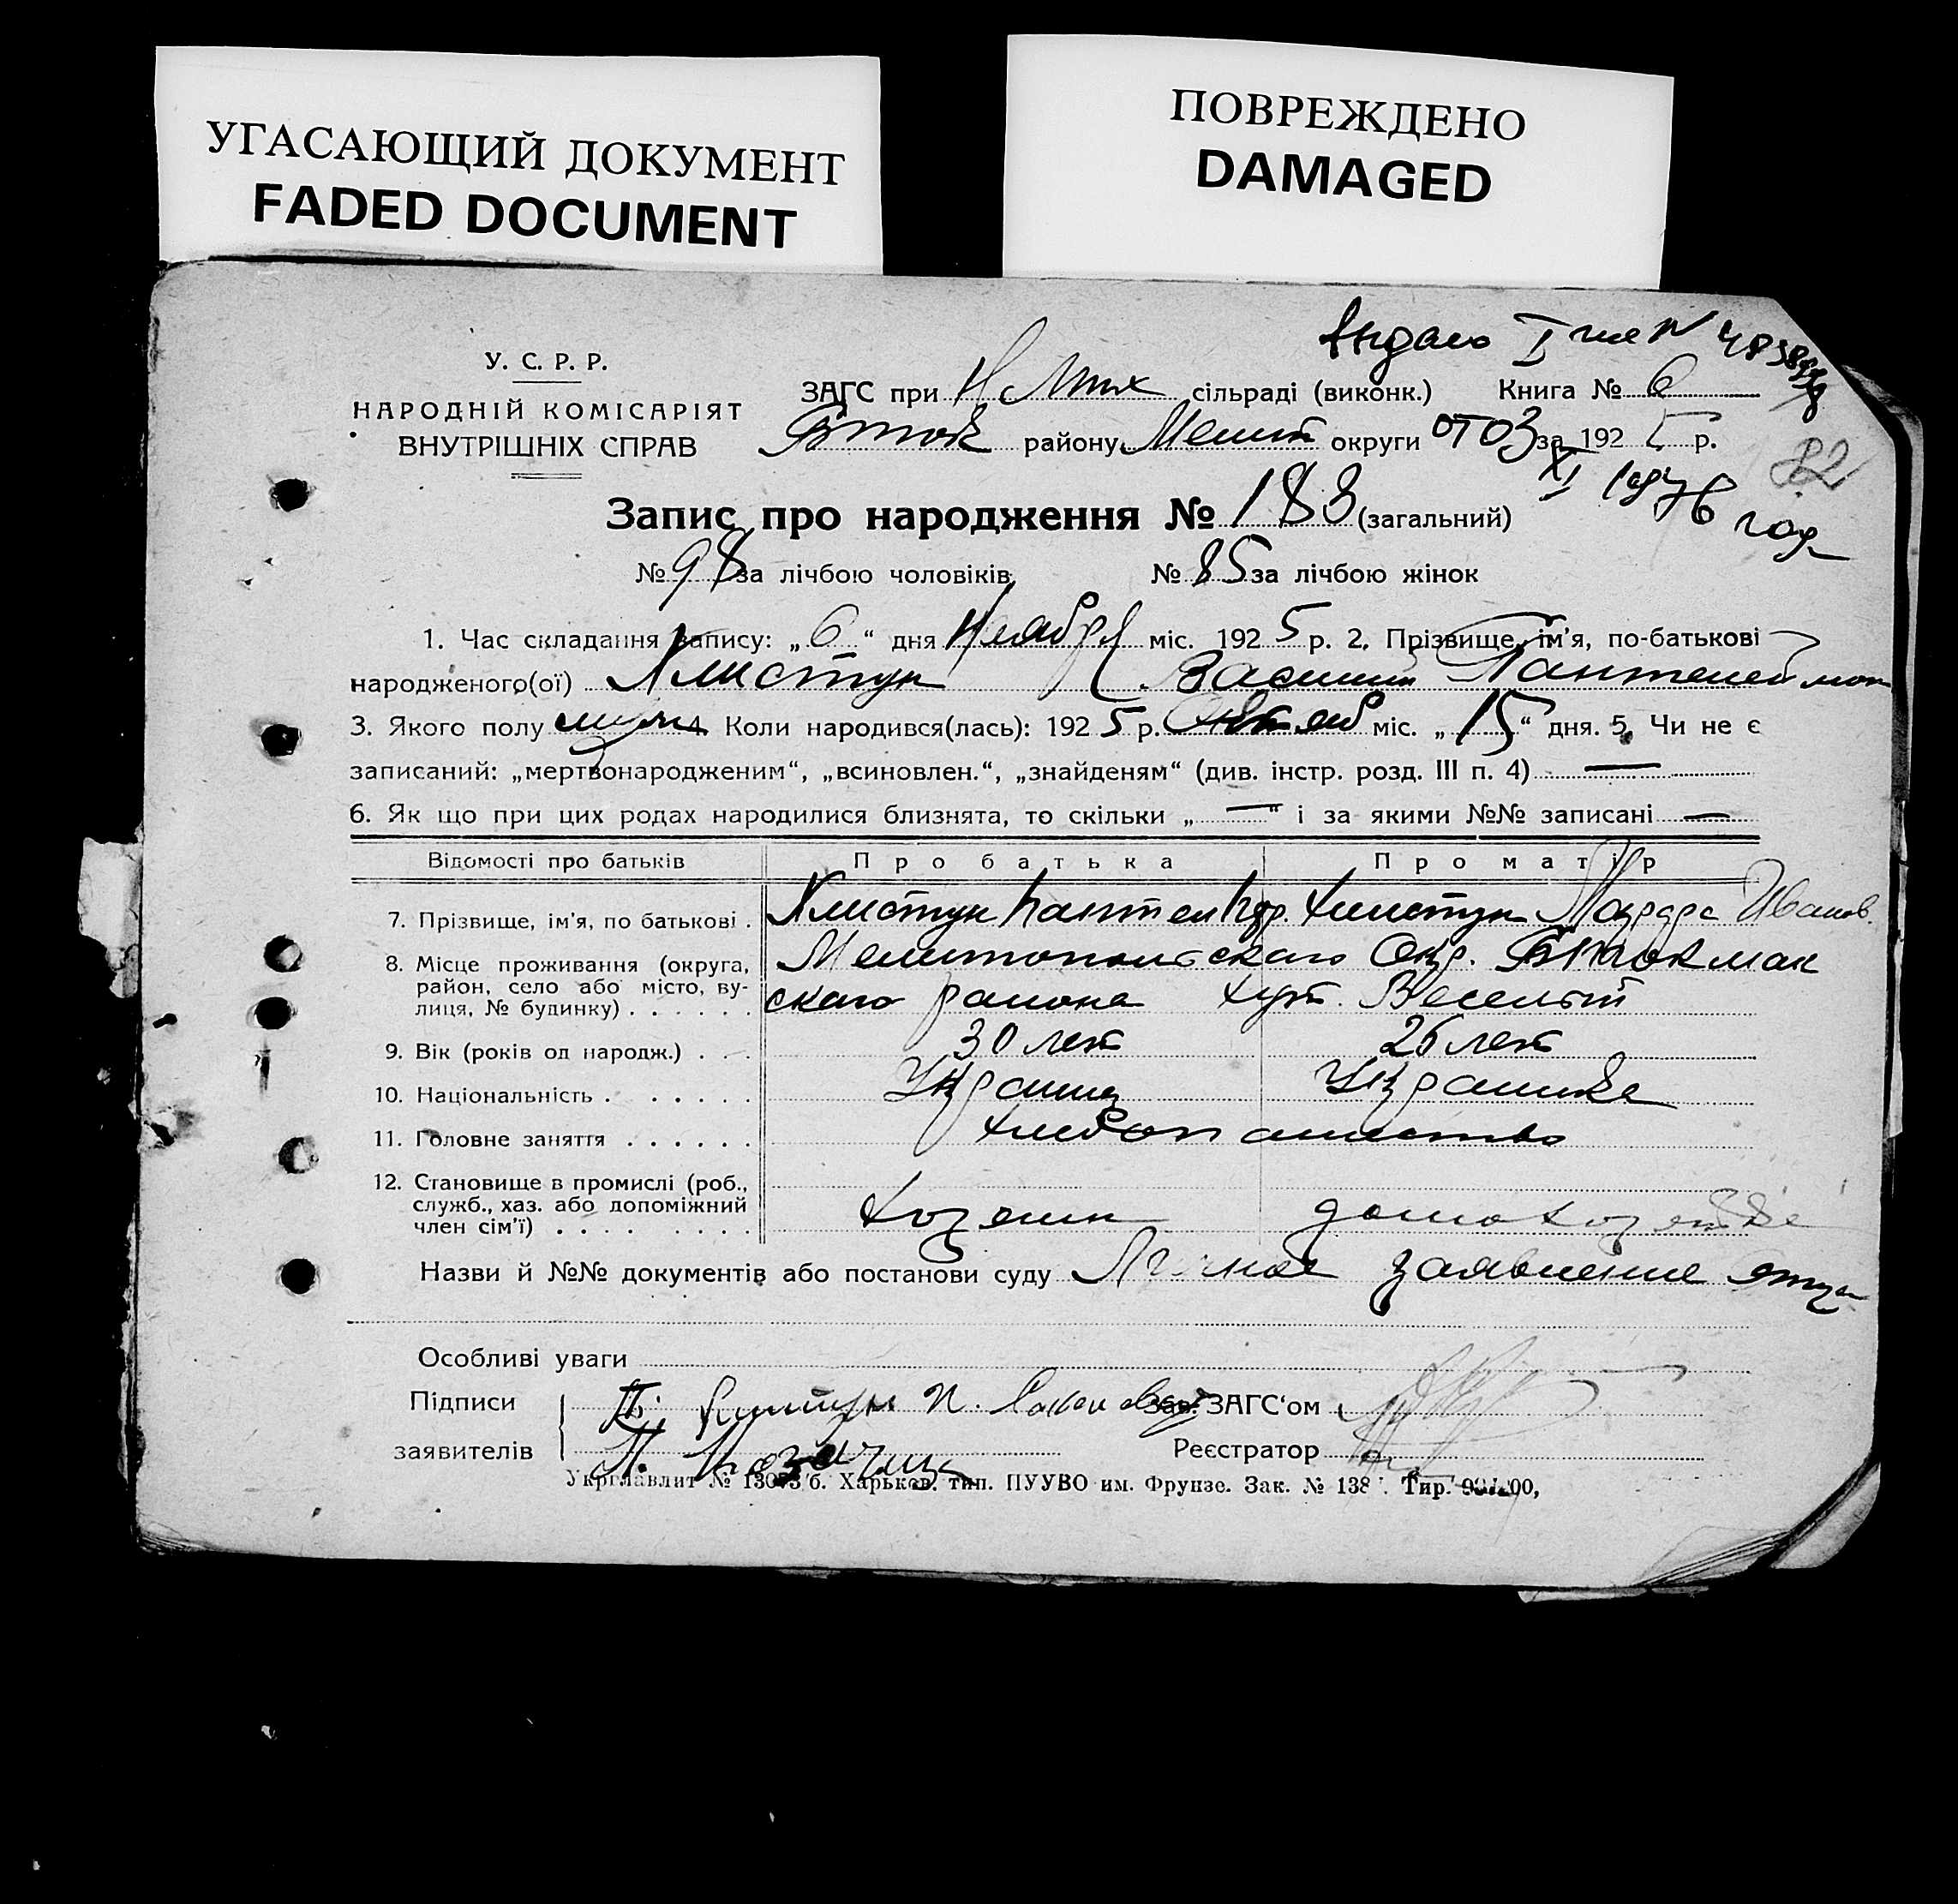 УГАСАЮЩИЙ ДОКУМЕНТ
FADED DOCUMENT
ПОВРЕЖДЕНО
DAMAGED
У. С. Р. Р.
НАРОДНІЙ КОМІСАРІЯТ
ВНУТРІШНІХ СПРАВ
ЗАГС при сільраді (виконк.) Книга № 6
району Мелит округи от 03 за 192 5 р.
XI 1976 год
82
Запис про народження № 183 (загальний)
№ 98 за лічбою чоловіків № 85 за лічбою жінок
1. Час складання запису: „ 6 “ дня Ноября міс. 192 5 р. 2. Прізвище, ім'я, по-батькові
народженого(ої) Хлистун Василий Пантелеймон
3. Якого полу муж 4. Коли народився(лась): 192 5 р. Октяб міс. „ 15 “ дня. 5. Чи не є
записаний: „мертвонародженим“, „всиновлен.“, „знайденям“ (див. інстр. розд. III п. 4) —
6. Як що при цих родах народилися близнята, то скільки „ — “ і за якими №№ записані —
Відомості про батьків Про батька Про матір
7. Прізвище, ім'я, по батькові . Хлистун Пантел Хлистун Иванов.
8. Місце проживання (округа, Мелитопольскаго Окр. Б Токмак
район, село або місто, ву-
лиця, № будинку) . . . . . . скаго района хут. Веселый
9. Вік (років од народж.) . . . 30 лет 26 лет
10. Національність . . . . . . Украинец Украинка
11. Головне заняття . . . . . . хлебопашество
12. Становище в промислі (роб.,
служб., хаз. або допоміжний
член сім'ї) . . . . . . . . хозяин домохозяйка
Назви й №№ документів або постанови суду Личное заявление отца
Особливі уваги
Підписи Зав. ЗАГС'ом
заявителів Реєстратор
Укрглавлит № 13073/б. Харьков. тип. ПУУВО им. Фрунзе. Зак. № 138 . Тир.